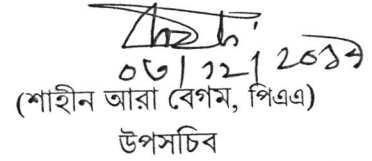 ০৩/১২/২০১৯
(শাহীন আরা বেগম, পিএএ)
উপসচিব